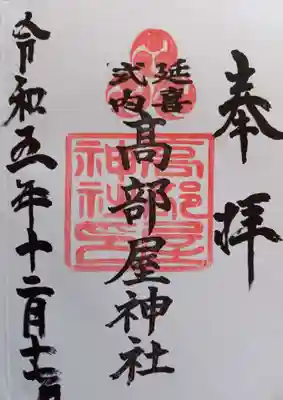 奉拝
延喜
式内
髙部屋神社
髙部屋
神社印
令和五年十二月十七日